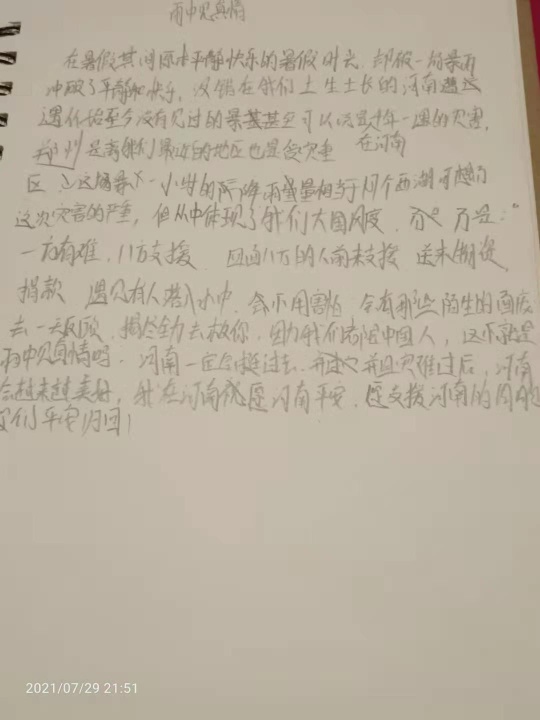 雨中见真情
在暑假其间原本平静快乐的暑假时光,却被一场暴雨
冲破了平静和快乐,没错在我们土生土长的河南遭这
遇什始至今没有见过的暴甚至可以说是千年一遇的灾害,
郑州是离我们最近的地区也是受灾重 在河南
区,这场暴一小时的降雨量相当于 个西湖可想而
这次灾害的严重,但从中体现了我们大国风度,
一方有难,八方支援 四面八方的人前来支援 送来物资
捐款 遇见有人落入水中,会不用害怕 会有那些陌生的面庞
去一 反顾 竭尽全力去救你,因为我们都是中国人,这不就是
雨中见真情吗,河南一定会挺过去,并且灾难过后,河南
会越来越美好,我在河南祝愿河南平安,愿支援河南的
们平安归回!
2021/07/29 21:51